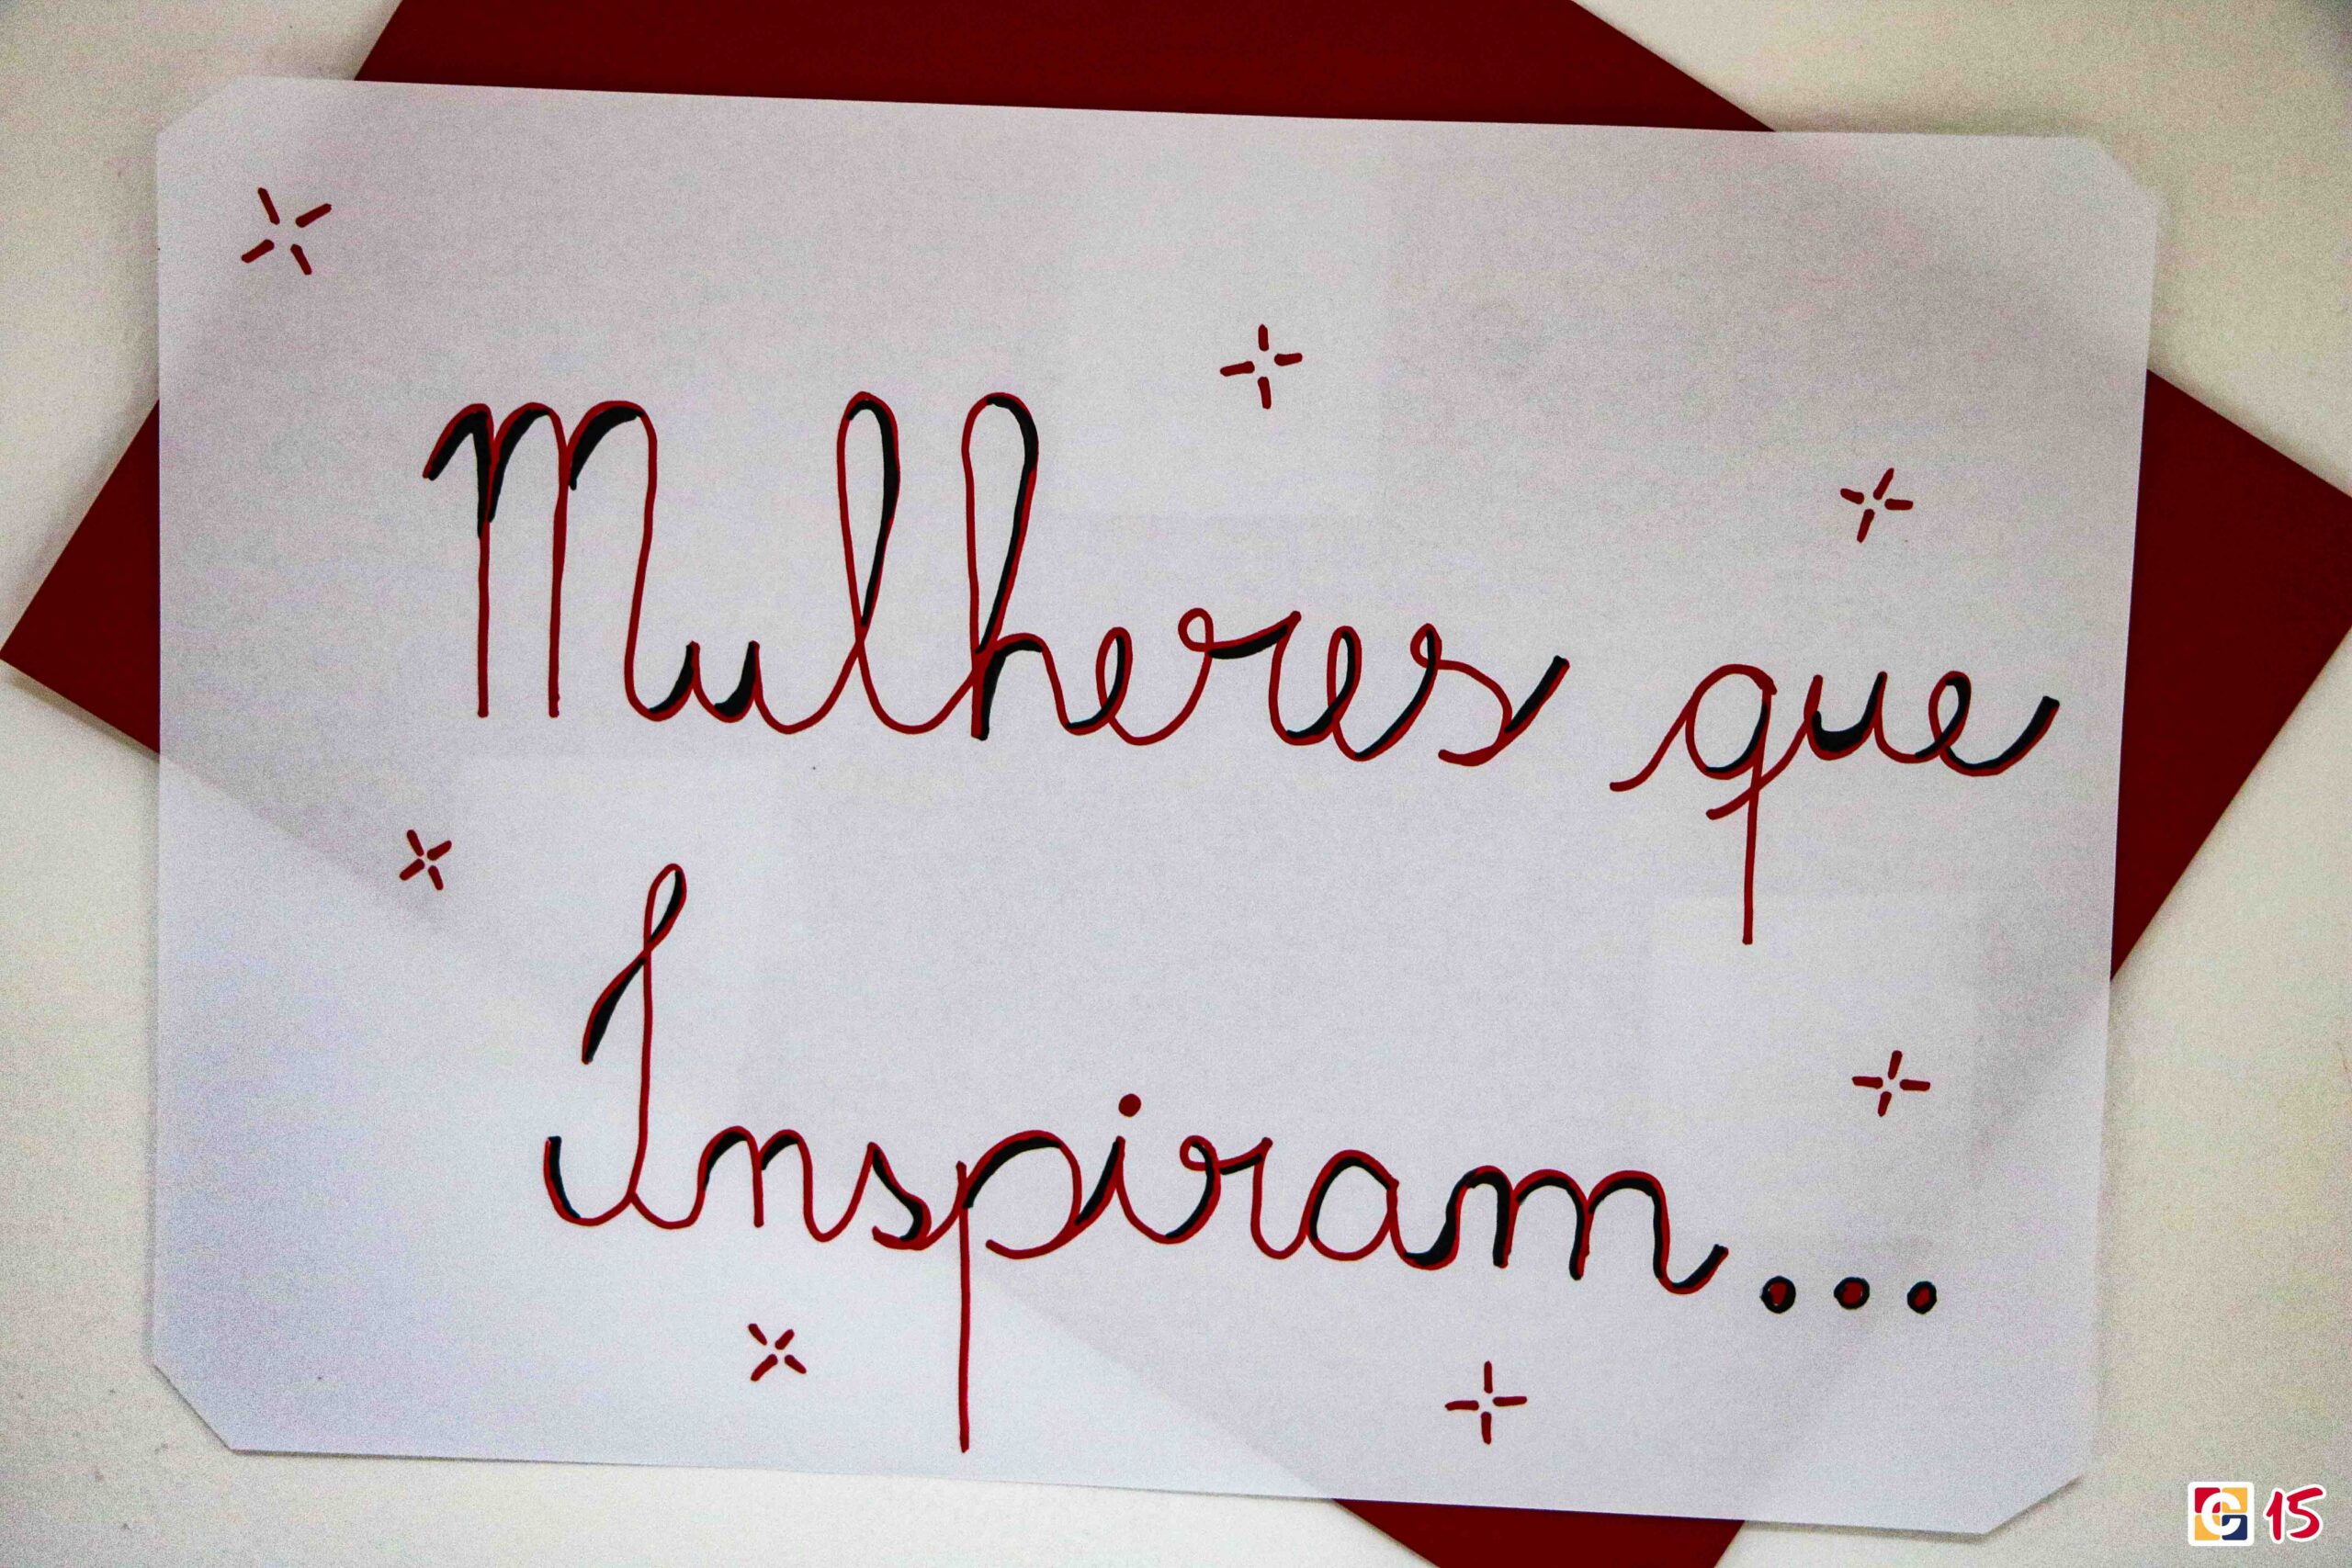 Mulheres que
Inspiram...
15